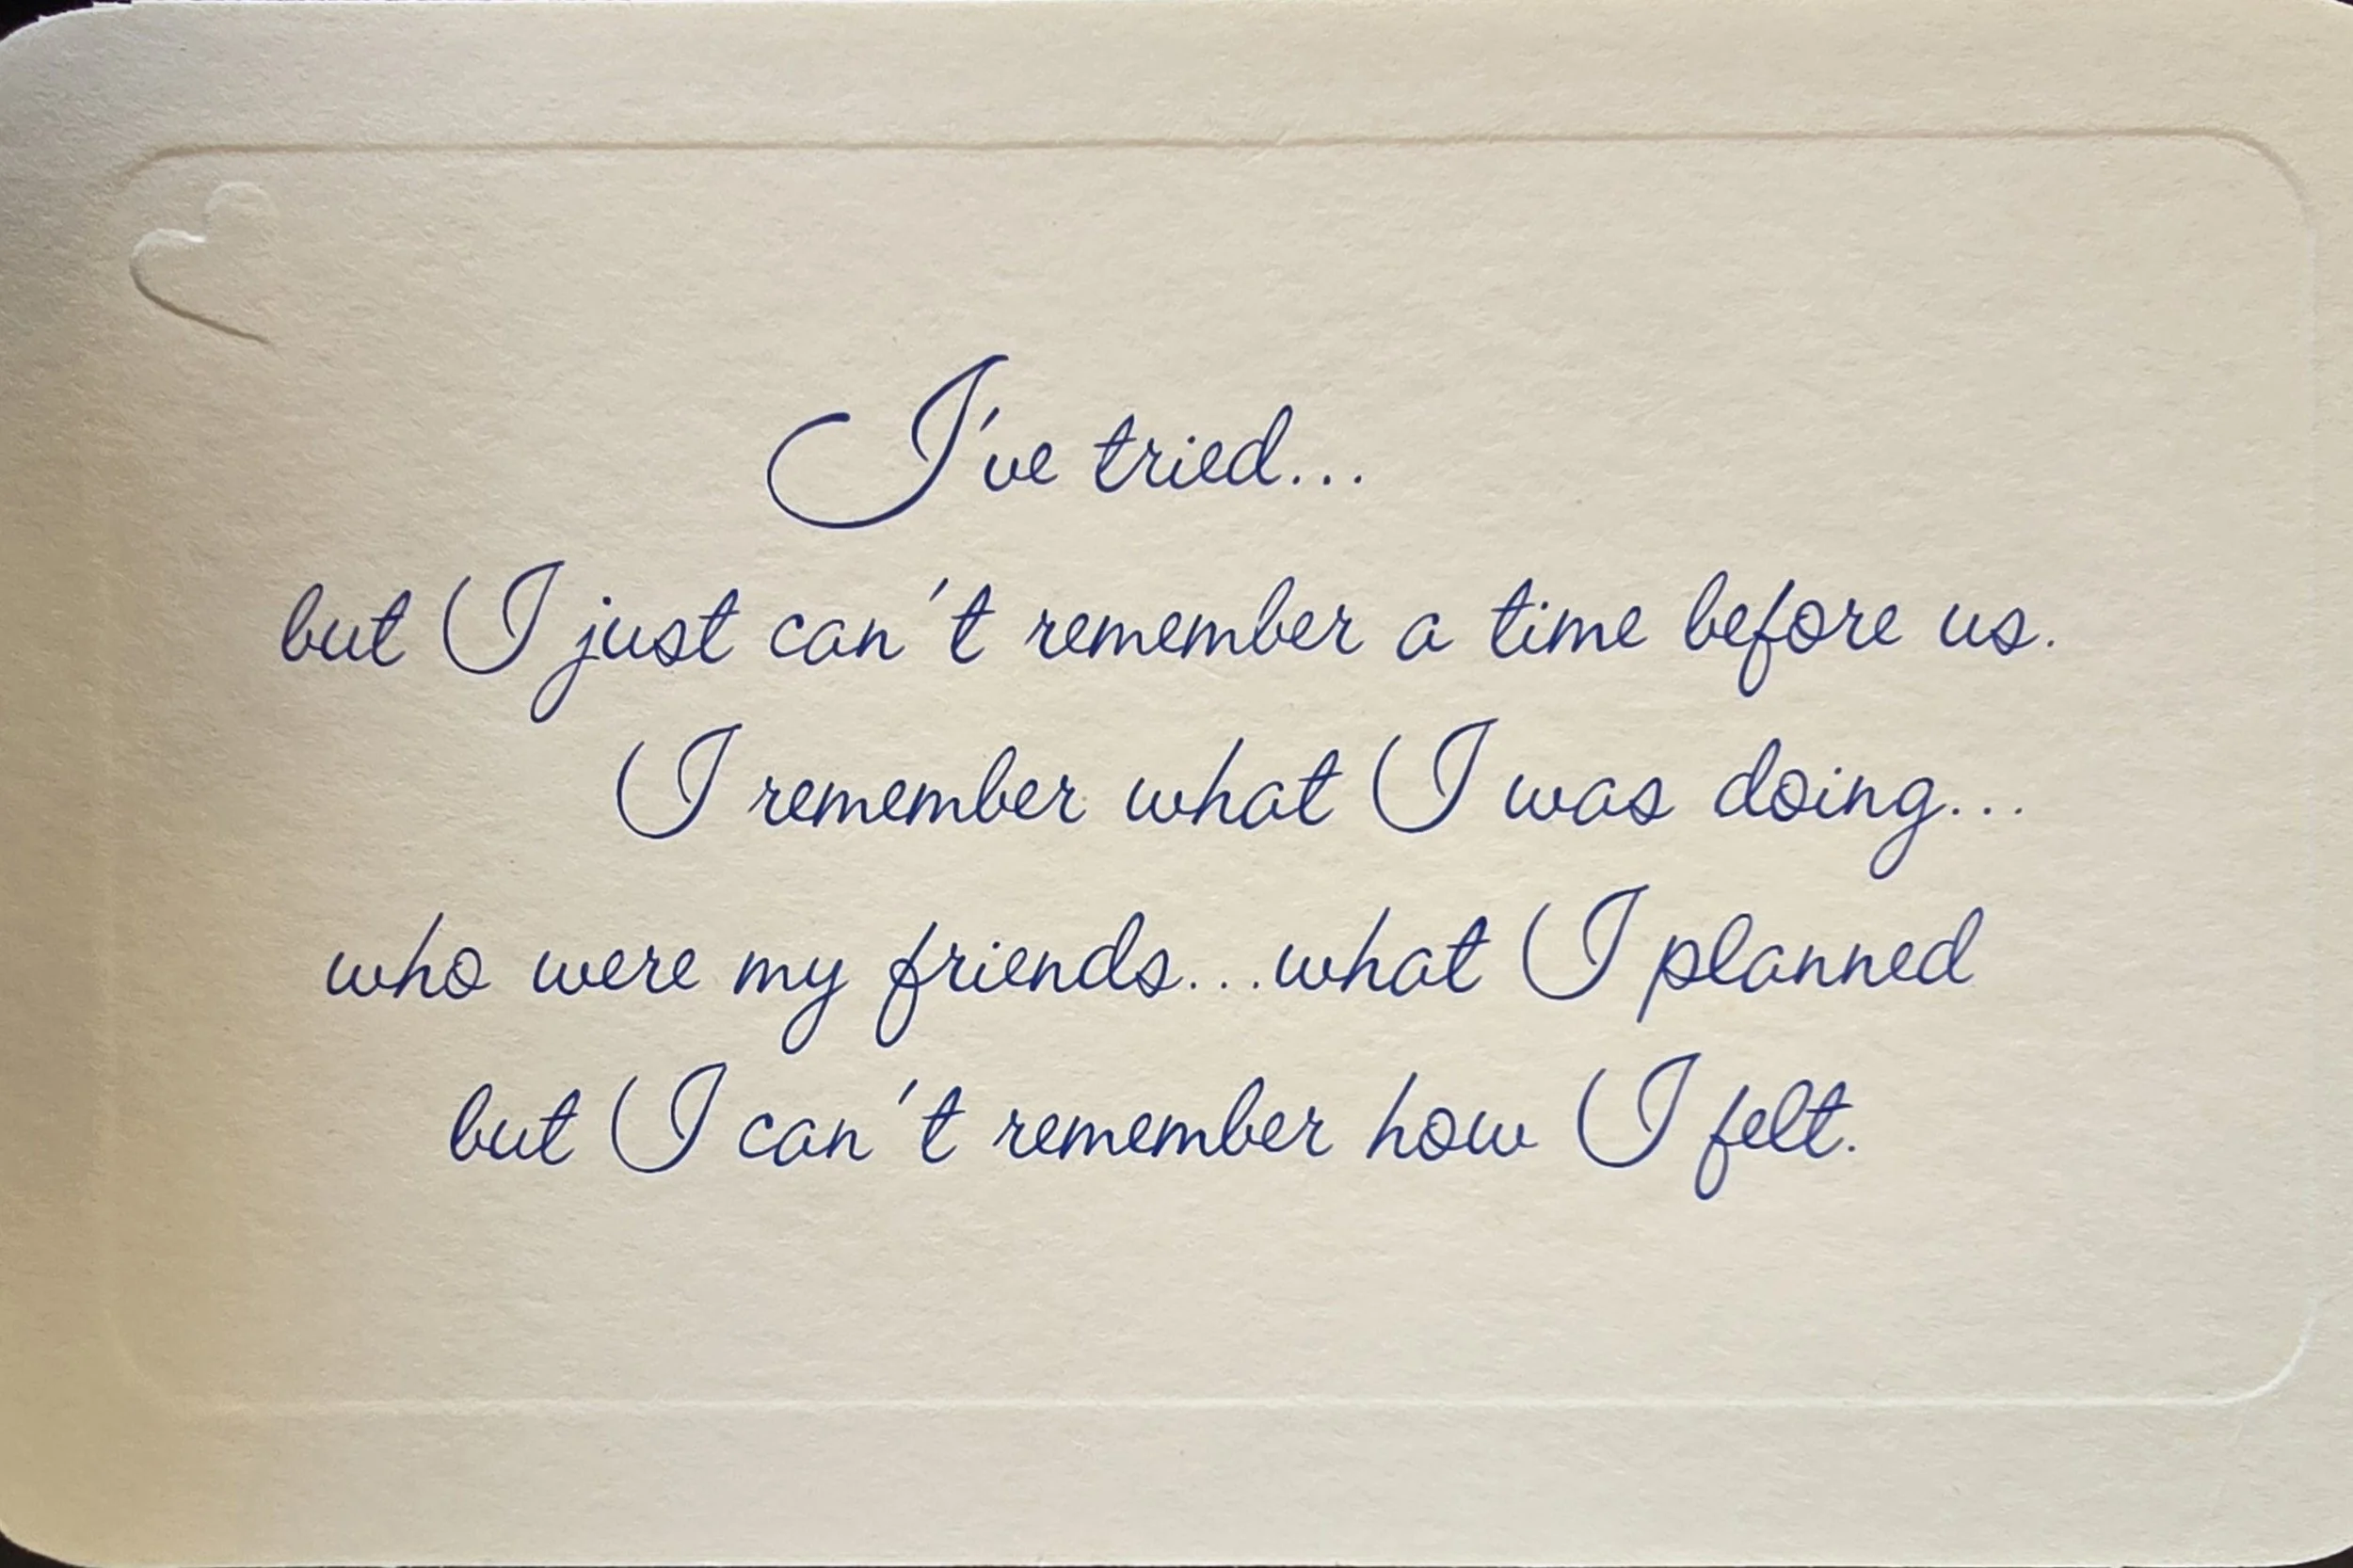 I've tried...
but I just can't remember a time before us.
I remember what I was doing...
who were my friends...what I planned
but I can't remember how I felt.